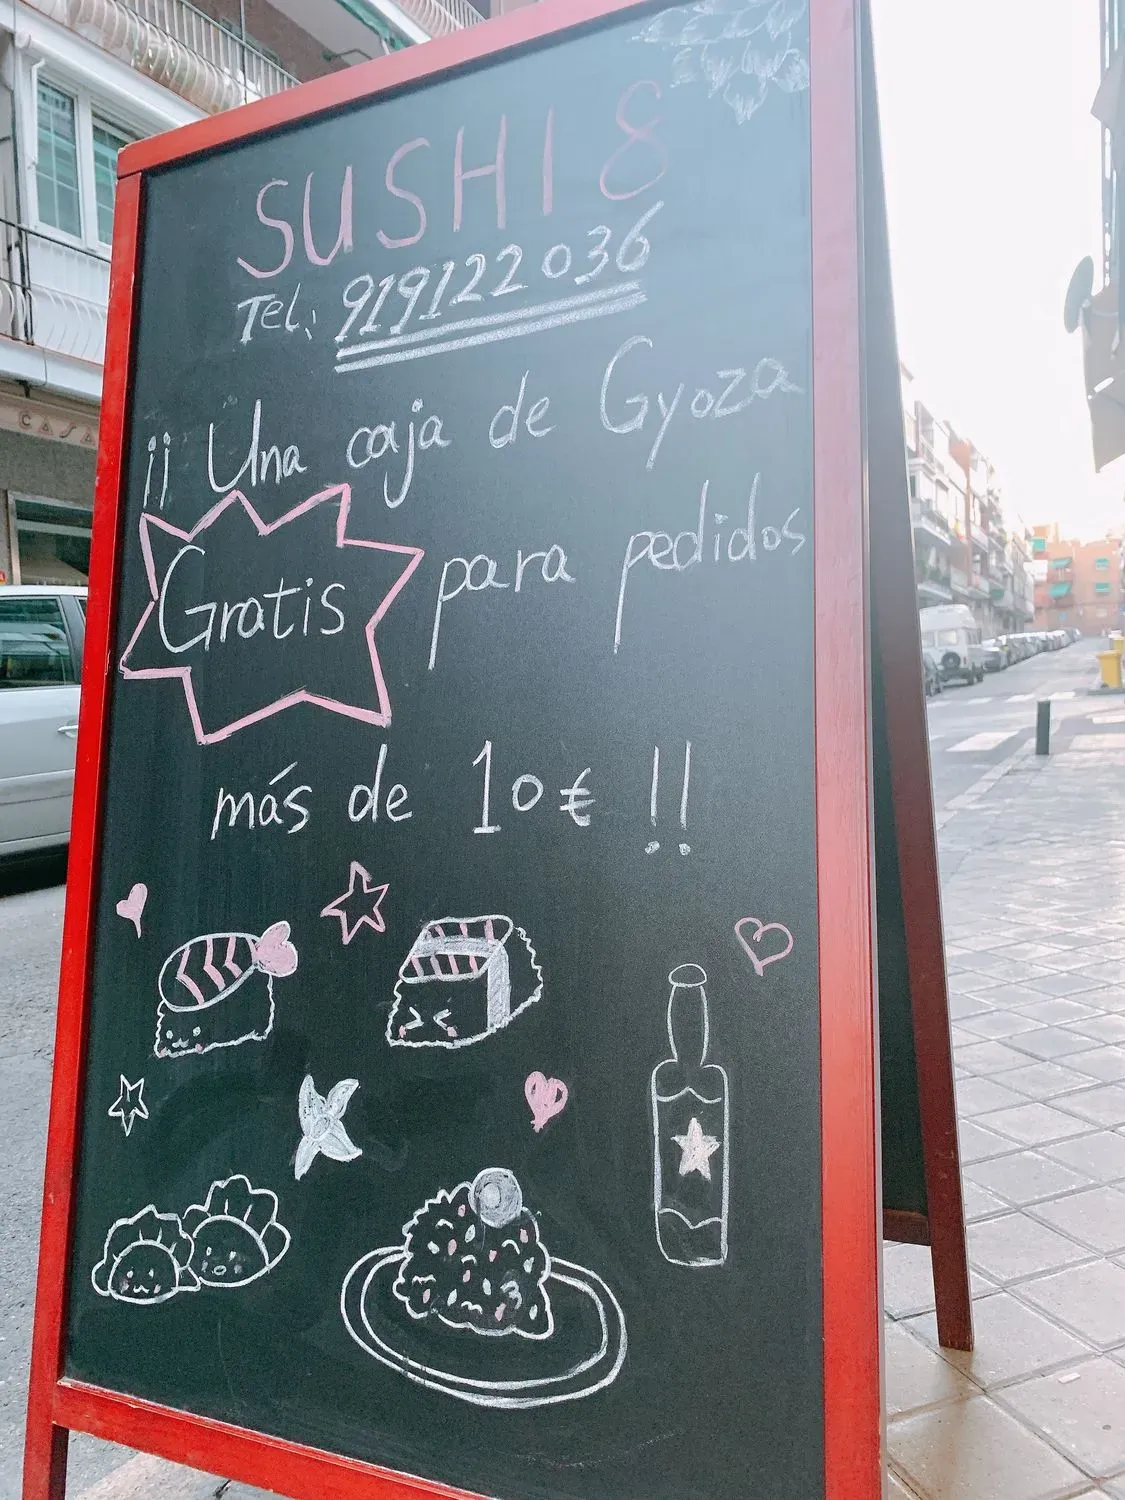 SUSHI 8
Tel: 919122036
¡¡ Una caja de Gyoza
Gratis para pedidos
más de 10€ !!
CASA